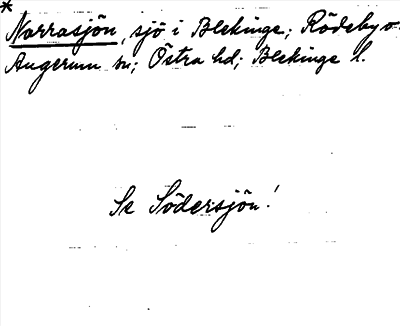 *
Norrasjön, sjö i Blekinge; Rödeby o.
Augerum sn; Östra hd; Blekinge l.
Se Södersjön!